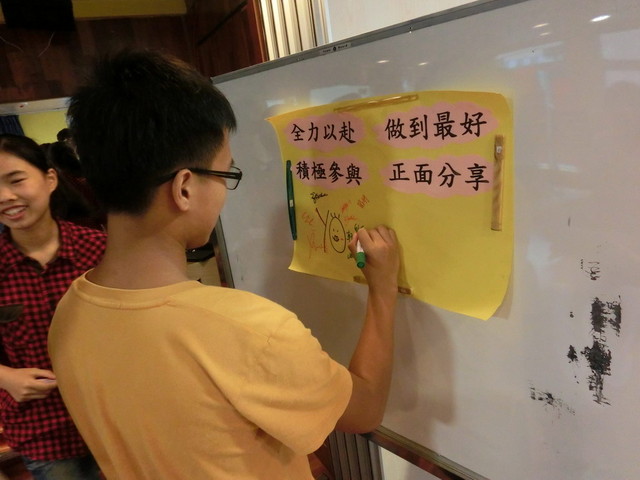 全力以赴 做到最好
積極參與 正面分享